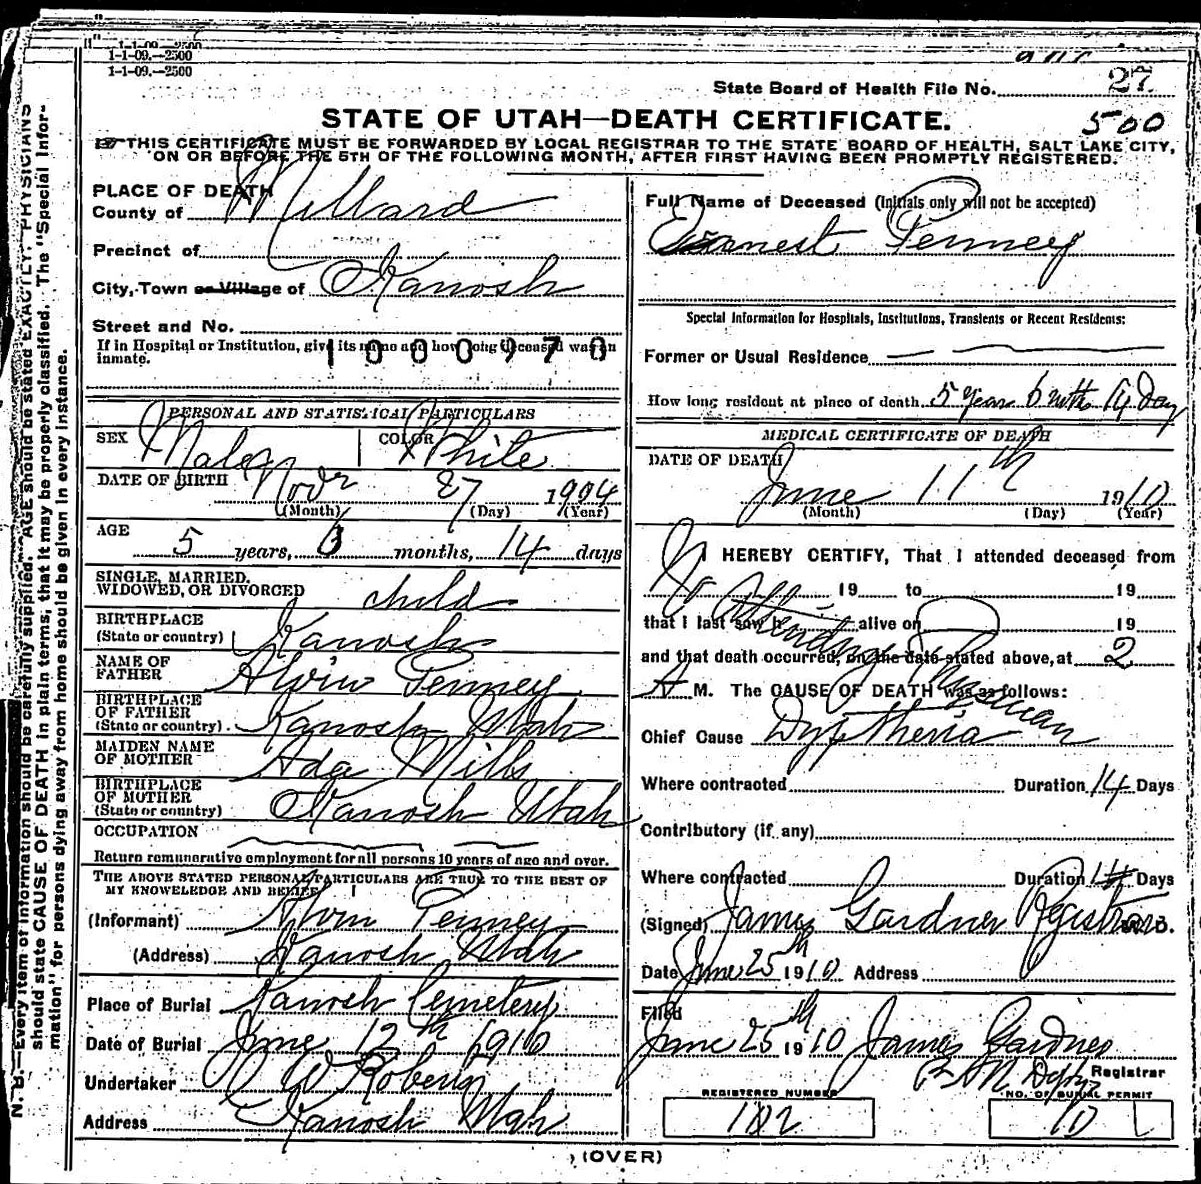 1-1-09.—2500
1-1-09.—2500
1-1-09.—2500
State Board of Health File No. 27
STATE OF UTAH—DEATH CERTIFICATE. 500
THIS CERTIFICATE MUST BE FORWARDED BY LOCAL REGISTRAR TO THE STATE BOARD OF HEALTH, SALT LAKE CITY,
ON OR BEFORE THE 5TH OF THE FOLLOWING MONTH, AFTER FIRST HAVING BEEN PROMPTLY REGISTERED.
N. B.—Every item of information should be carefully supplied. AGE should be stated EXACTLY. PHYSICIANS
should state CAUSE OF DEATH in plain terms, that it may be properly classified. The "Special Infor-
mation" for persons dying away from home should be given in every instance.
PLACE OF DEATH
County of Millard
Precinct of
City, Town or Village of Kanosh
Street and No.
If in Hospital or Institution, give its name and how long deceased was an
inmate.
1000970
PERSONAL AND STATISTICAL PARTICULARS
SEX Male COLOR White
DATE OF BIRTH Novr 27 1904
(Month) (Day) (Year)
AGE
5 years, 6 months, 14 days
SINGLE, MARRIED,
WIDOWED, OR DIVORCED child
BIRTHPLACE
(State or country) Kanosh
NAME OF
FATHER Alvin Penney
BIRTHPLACE
OF FATHER
(State or country) Kanosh Utah
MAIDEN NAME
OF MOTHER Ada Mills
BIRTHPLACE
OF MOTHER
(State or country) Kanosh Utah
OCCUPATION
Return remunerative employment for all persons 10 years of age and over.
THE ABOVE STATED PERSONAL PARTICULARS ARE TRUE TO THE BEST OF
MY KNOWELEDGE AND BELIEF
(Informant) Alvin Penney
(Address) Kanosh Utah
Place of Burial Kanosh Cemetery
Date of Burial June 12th 1910
Undertaker W Roberts
Address Kanosh Utah
Full Name of Deceased (Initials only will not be accepted)
Earnest Penney
Special Information for Hospitals, Institutions, Transients or Recent Residents:
Former or Usual Residence
How long resident at place of death 5 Years 6 mths 14 Day
MEDICAL CERTIFICATE OF DEATH
DATE OF DEATH
June 11th 1910
(Month) (Day) (Year)
I HEREBY CERTIFY, That I attended deceased from
19 to 19
that I last saw h alive on 19
No Attending Physician
and that death occurred, on the date stated above, at 2
A M. The CAUSE OF DEATH was as follows:
Chief Cause Dyptheria
Where contracted Duration 14 Days
Contributory (if any)
Where contracted Duration 14 Days
(Signed) James Gardner Registrar
Date June 25th 1910 Address
Filed
June 25th 1910 James Gardner
Registrar
REGISTERED NUMBER
102
NO. OF BURIAL PERMIT
10
(OVER)